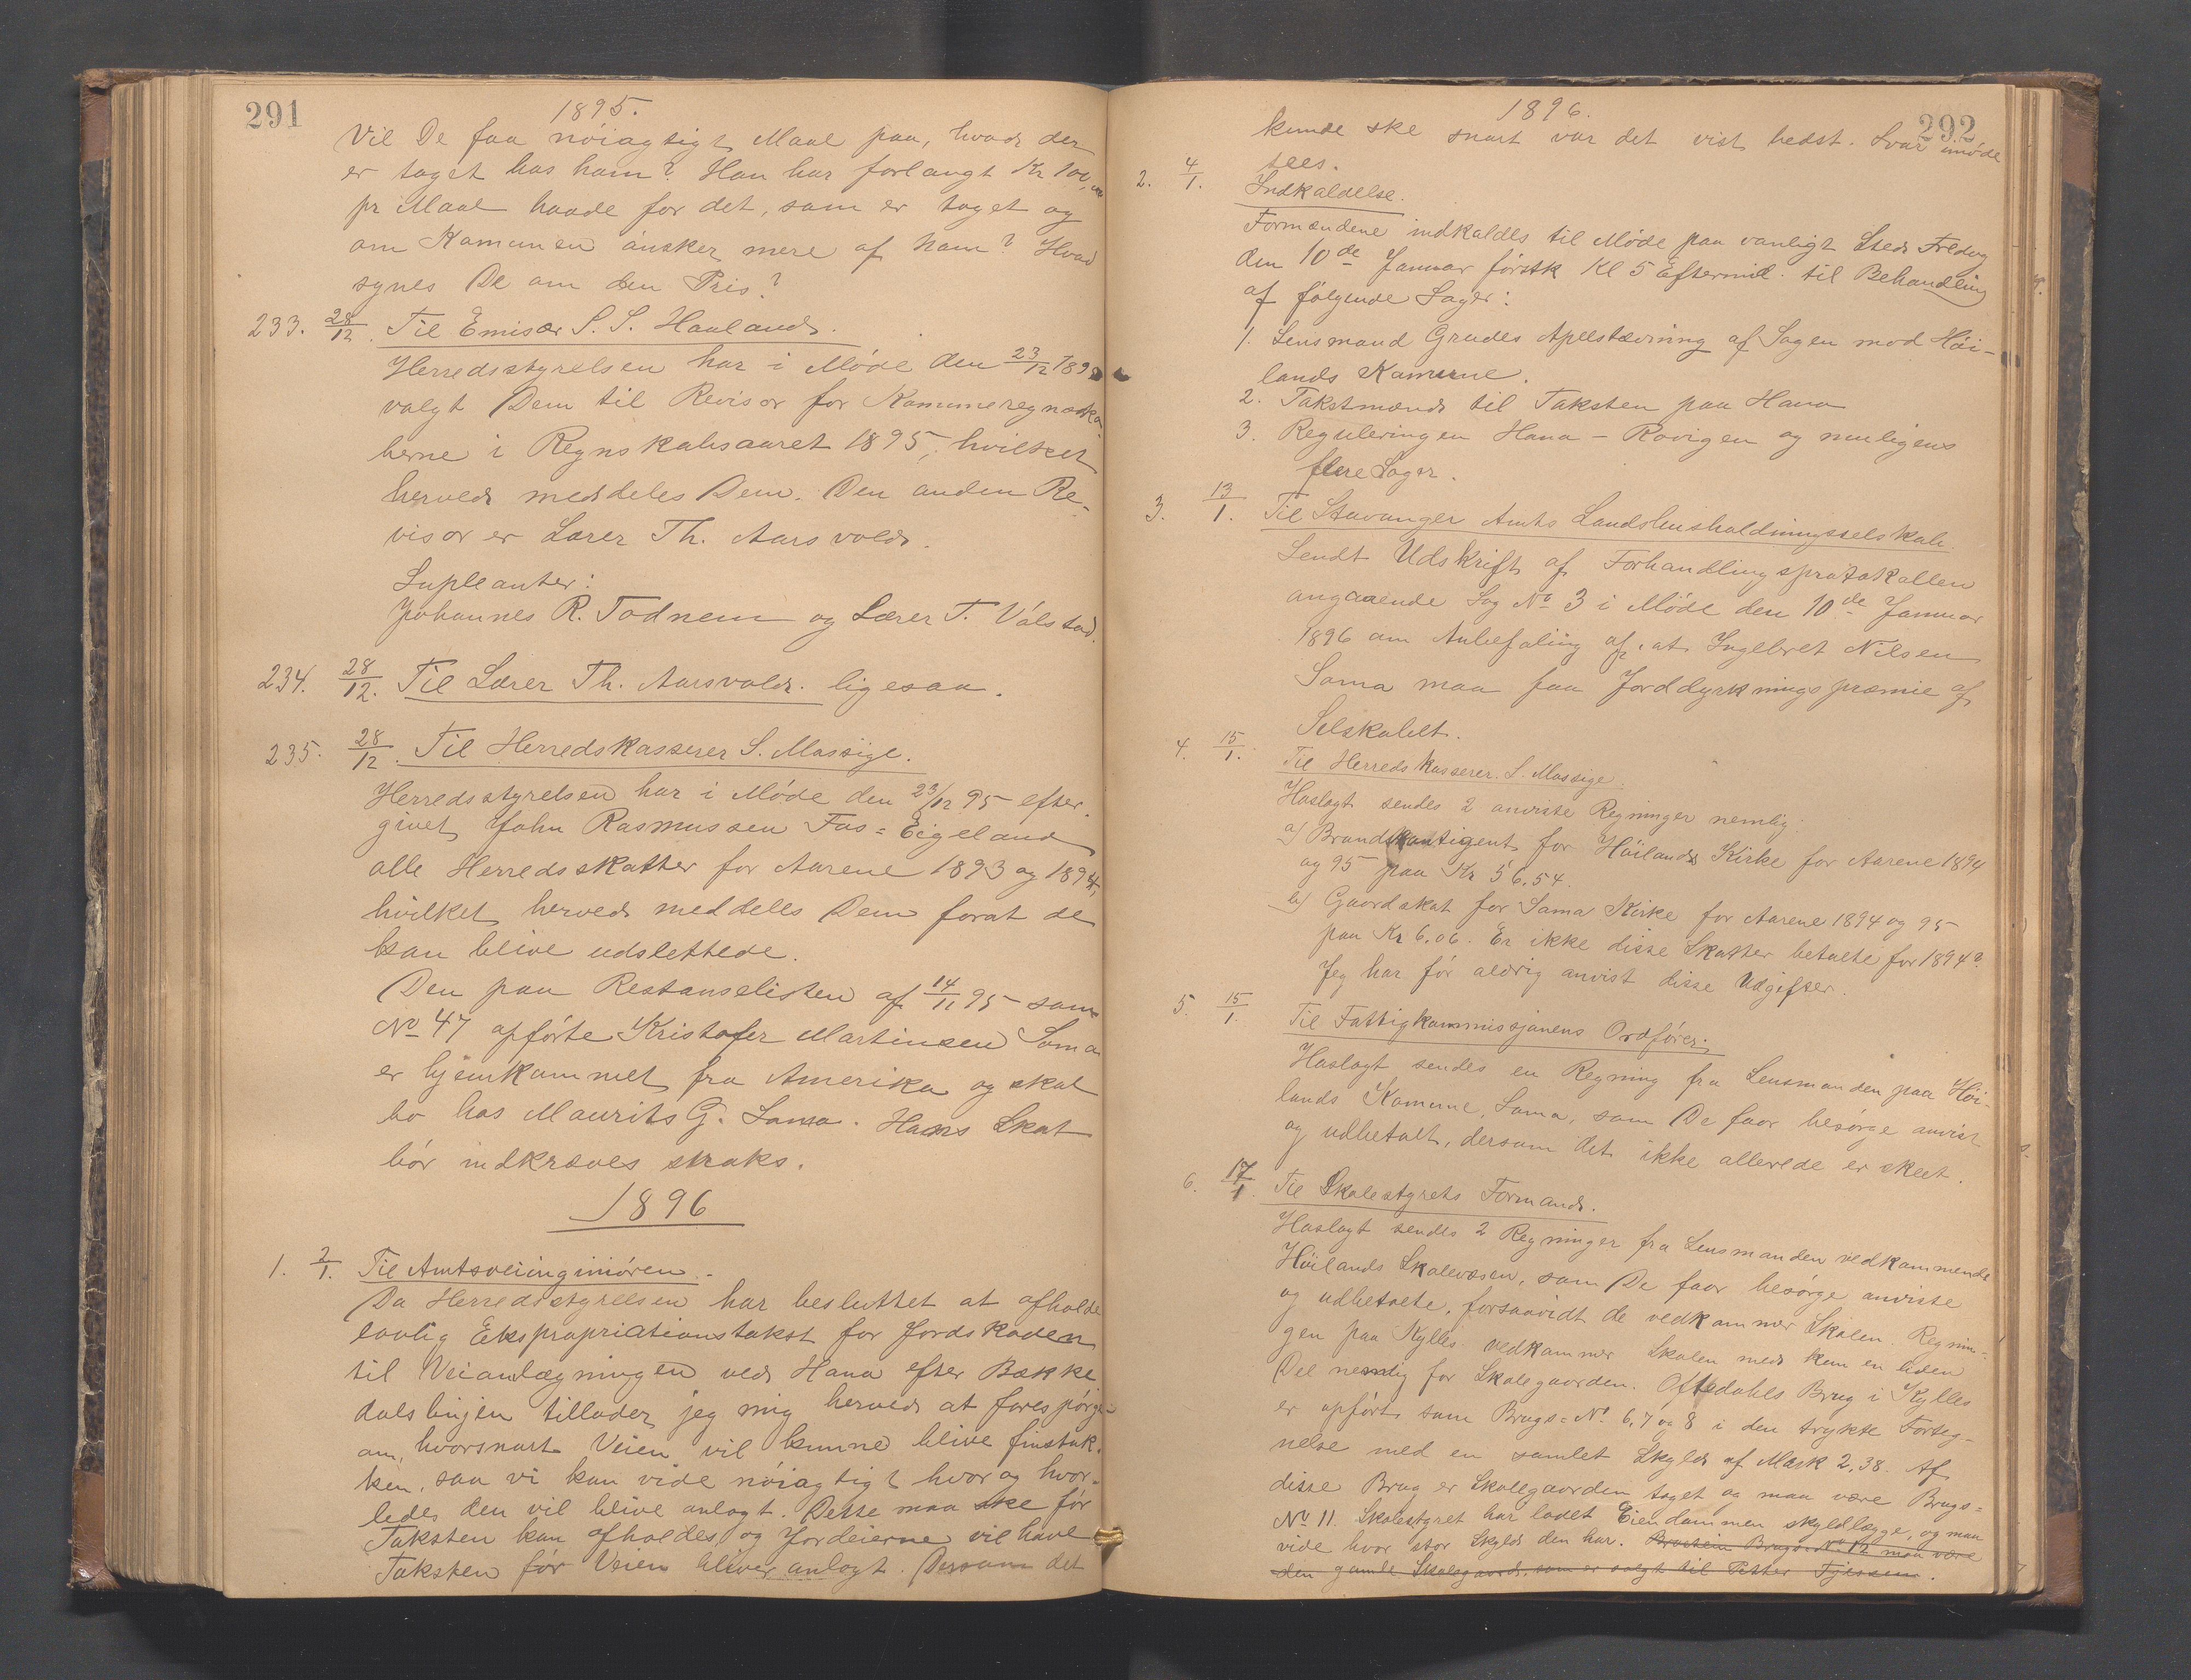 291
1895.
Vil De faa nöiagtigt Maal paa, hvad der
er taget hos ham? Han har forlangt Kr 100,00
pr Maal baade for det, som er taget og
om Komunen önsker mere af ham? Hvad
synes De om den Pris?
233. 28/12. Til Emisær S. S. Haaland.
Herredsstyrelsen har i Möde den 23/12 1895
valgt Dem til Revisor for Komuneregnska-
berne i Regnskabsaaret 1895, hvilket
herved meddeles Dem. Den anden Re-
visor er Lærer Th. Aarsvold.
Supleanter:
Johannes R. Todnem og Lærer T. Válstad.
234. 28/12. Til Lærer Th. Aarsvold. ligesaa.
235. 28/12. Til Herredskasserer S. Massige.
Herredsstyrelsen har i Möde den 23/12 95 efter-
givet John Rasmussen Fos=Eigeland
alle Herredsskatter for Aarene 1893 og 1894,
hvilket herved meddeles Dem forat de
kan blive udslettede.
Den paa Restanselisten af 14/11 95 som
No 47 opförte Kristofer Martinsen Soma
er hjemkommet fra Amerika og skal
bo hos Maurits G. Soma. Hans Skat
bör indkræves straks.
1896
1. 2/1. Til Amtsveiingeniören.
Da Herredsstyrelsen har besluttet at afholde
lovlig Ekspropriationstakst for Jordskaden
til Veianlægningen ved Hana efter Bække
dalslinjen tillader jeg mig herved at forespörge
om, hvorsnart Veien vil kunne blive finstuk-
ken, saa vi kan vide nöiagtigt hvor og hvor-
ledes den vil blive anlagt. Dette maa ske för
Taksten kan afholdes, og Jordeierne vil have
Taksten för Veien bliver anlagt. Dersom det
292
1896.
kunde ske snart var det vist bedst. Svar imöde
sees.
2. 4/1. Indkaldelse.
Formændene indkaldes til Möde paa vanligt Sted Fredag
den 10de Januar förstk Kl 5 Eftermid. til Behandling
af fölgende Sager:
1. Lensmand Grudes Apelstævning af Sagen mod Höi-
lands Komune.
2. Takstmænd til Taksten paa Hana
3. Reguleringen Hana - Rovigen og muligens
flere Sager.
3. 13/1. Til Stavanger Amts Landshusholdningsselskab.
Sendt Udskrift af Forhandlingsprotokollen
angaaende Sag No 3 i Möde den 10de Januar
1896 om Anbefaling af, at Ingebret Nilsen
Soma maa faa Jorddyrkningspræmie af
Selskabet.
4. 15/1. Til Herredskasserer S. Massige.
Hoslagt sendes 2 anviste Regninger nemlig
a) Brandkontigent for Höilands Kirke for Aarene 1894
og 95 paa Kr 56.54.
b) Gaardskat for Soma Kirke for Aarene 1894 og 95
paa Kr 6.06. Er ikke disse Skatter betalte for 1894?
Jeg har för aldrig anvist disse Udgifter.
5. 15/1. Til Fattigkommissjonens Ordförer.
Hoslagt sendes en Regning fra Lensmanden paa Höi-
lands Komune, Soma, som De faar besörge anvist
og udbetalt, dersom det ikke allerede er skeet.
6. 17/1. Til Skolestyrets Formand.
Hoslagt sendes 2 Regninger fra Lensmanden vedkommende
Höilands Skolevæsen, som De faar besörge anviste
og udbetalte, forsaavidt de vedkommer Skolen. Regnin-
gen paa Kylles vedkommer Skolen med kun en liden
Del nemlig for Skolegaarden. Oftedahls Brug i Kylles
er opfört som Brugs=No. 6, 7 og 8 i den trykte Forteg-
nelse med en samlet Skyld af Mark 2,38. Af
disse Brug er Skolegaarden taget og maa være Brugs=
No 11. Skolestyret har ladet Eiendommen skyldlægge, og maa
vide hvor stor Skyld den har. Brustein Brugs=No 12 maa være
den gamle Skolegaard, som er solgt til Petter Tjessem.